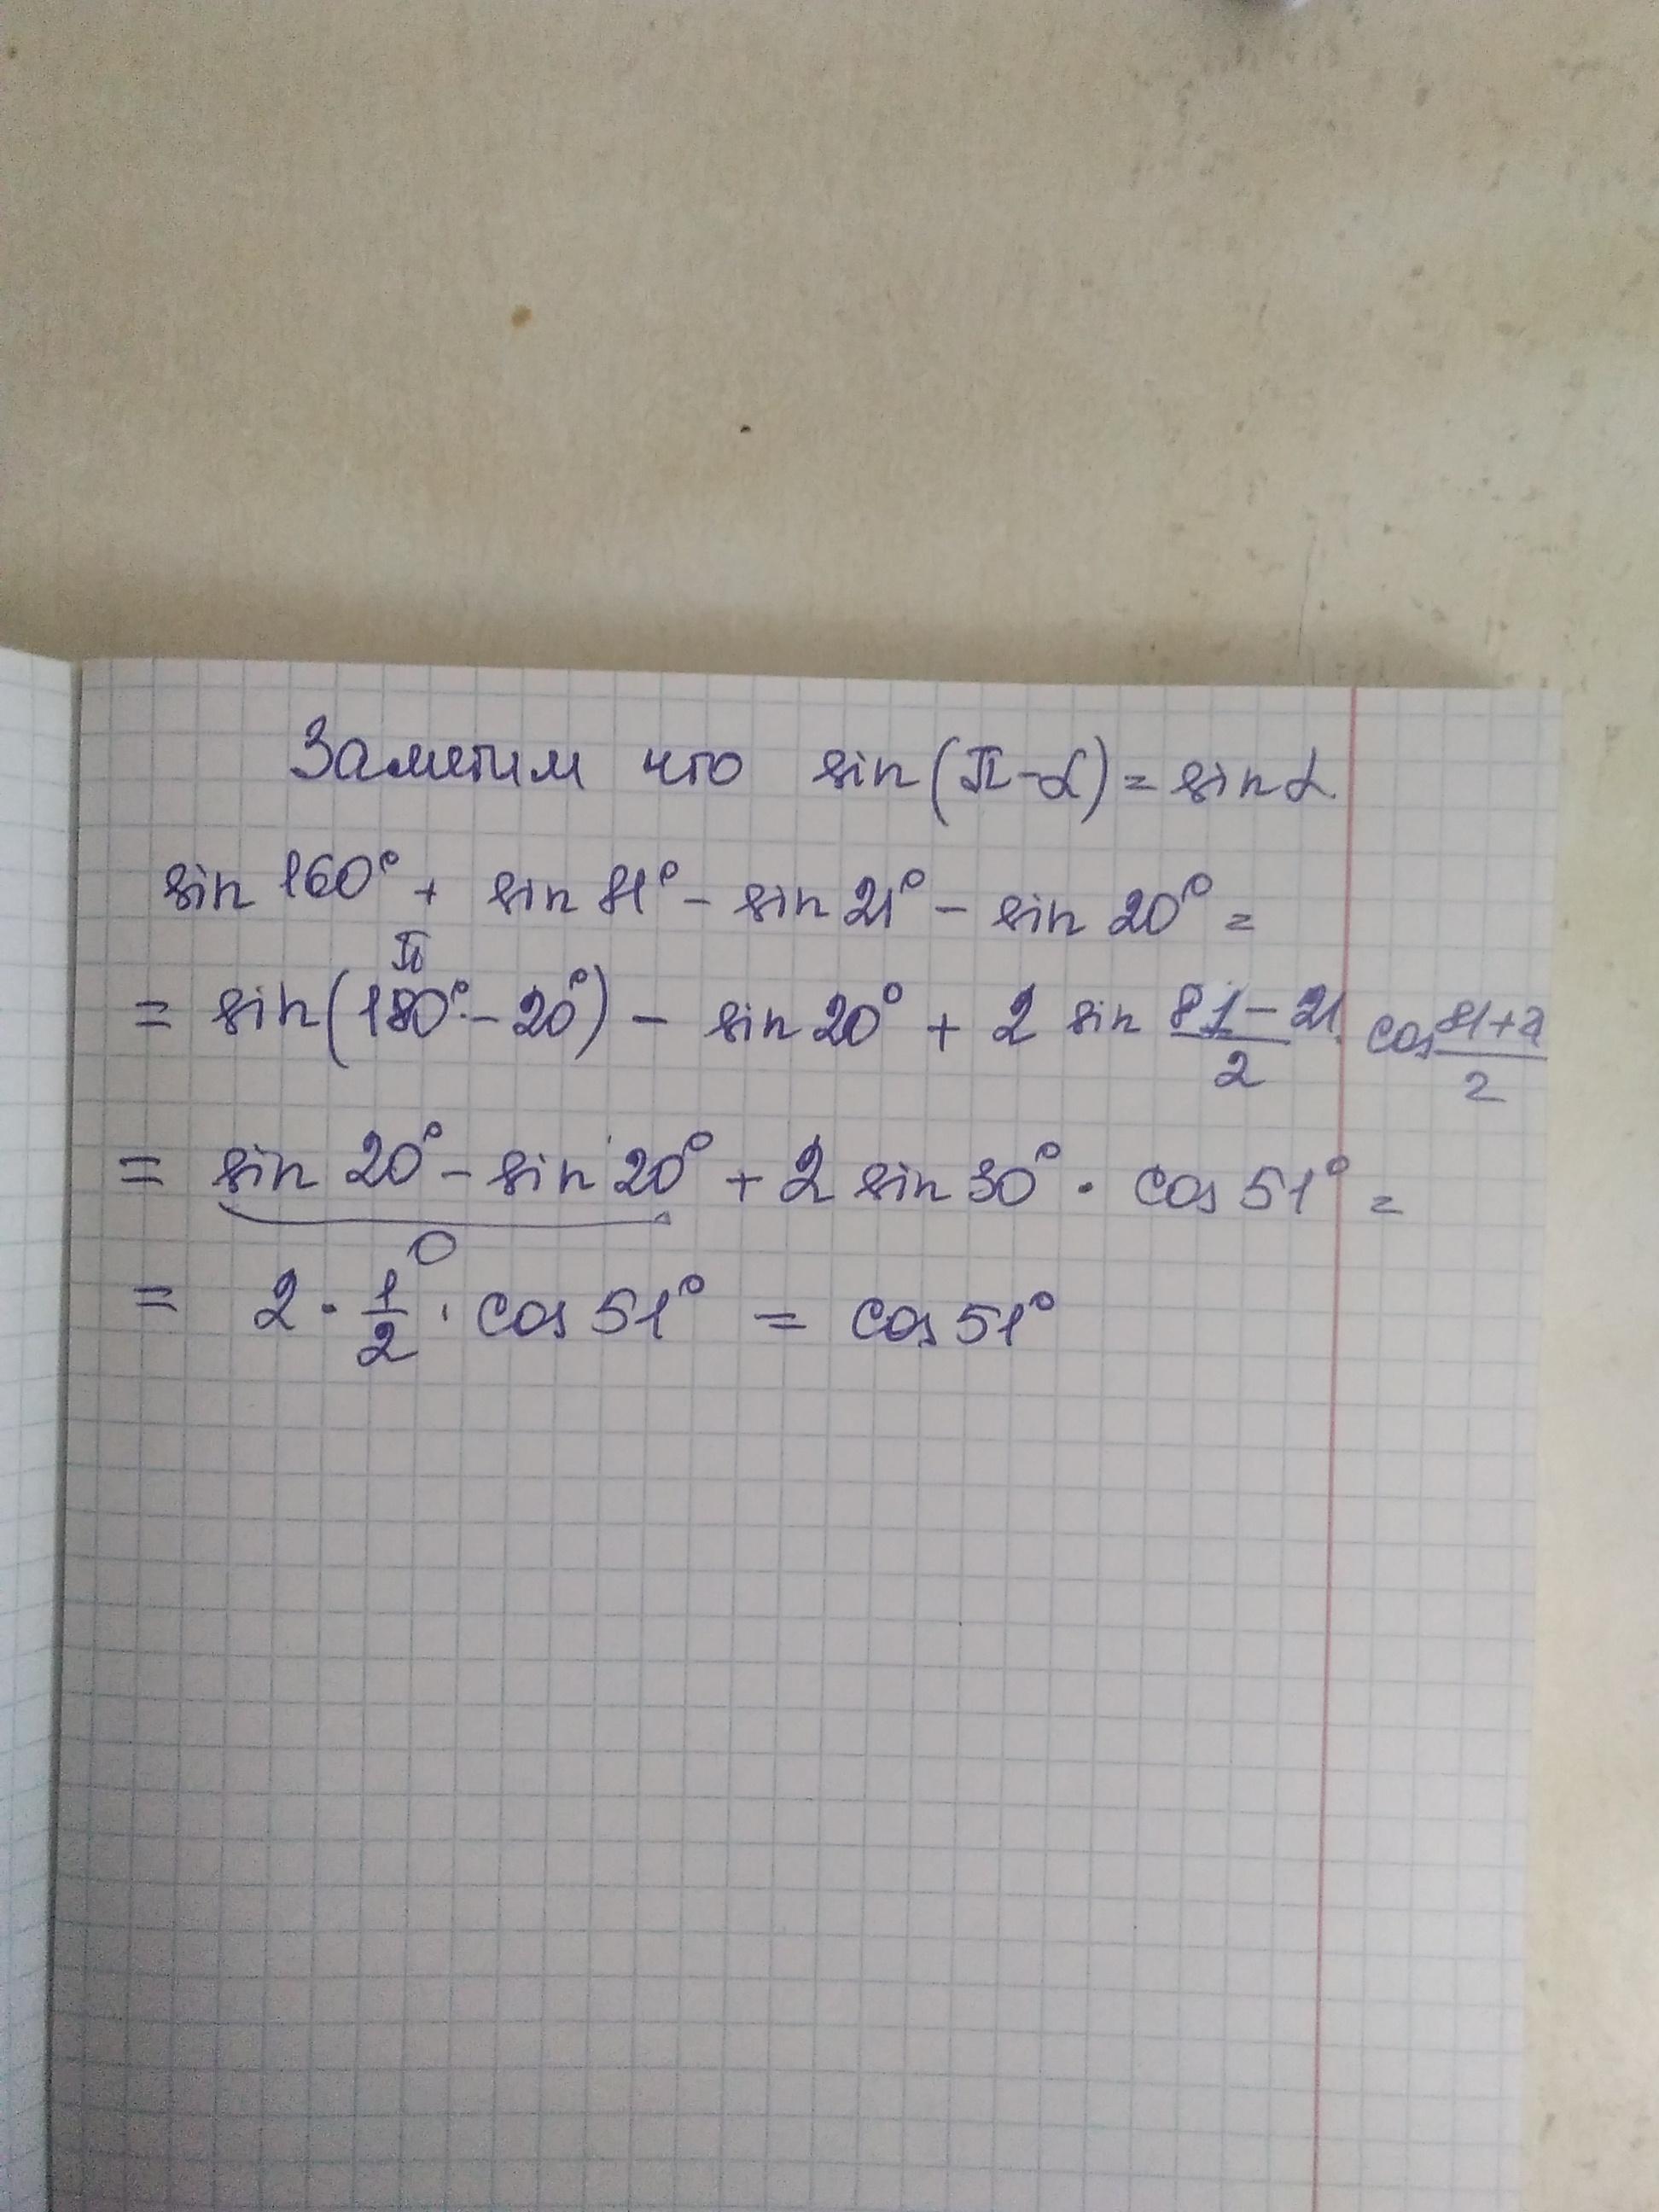 Заметим что sin(π-α)=sinα
sin 160° + sin 81° - sin 21° - sin 20° =
π
= sin(180° - 20°) - sin 20° + 2 sin (81-21)/2 · cos (81+2)/2
= sin 20° - sin 20° + 2 sin 30° · cos 51° =
0
= 2 · 1/2 · cos 51° = cos 51°